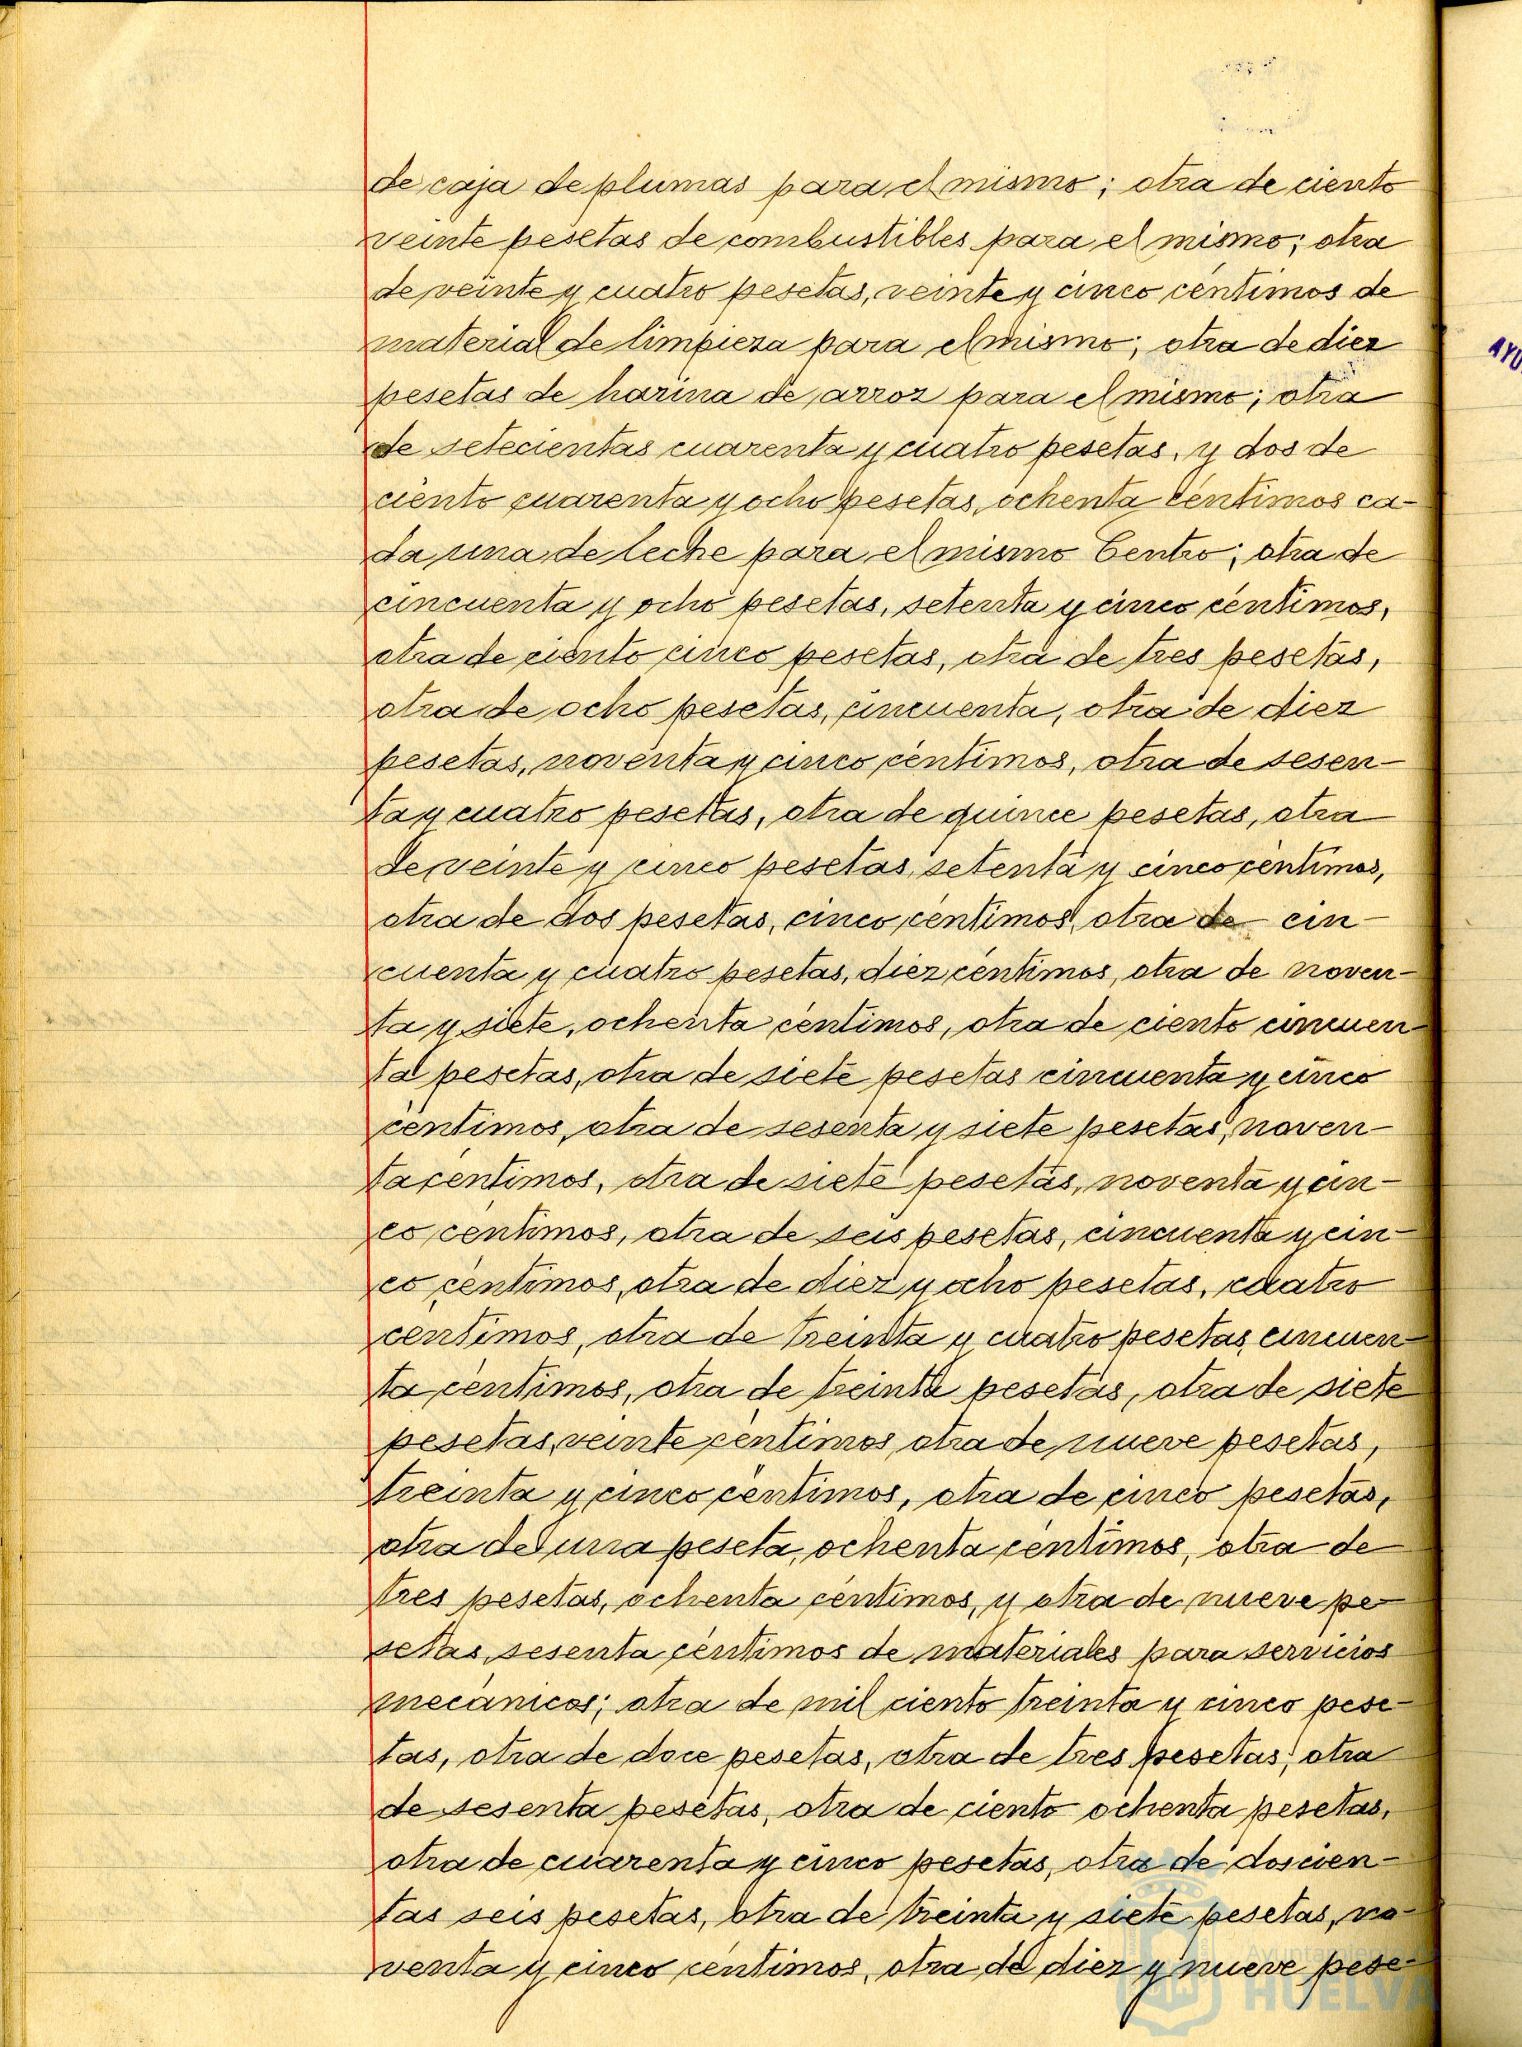 de caja de plumas para el mismo; otra de ciento
veinte pesetas de combustibles para el mismo; otra
de veinte y cuatro pesetas, veinte y cinco céntimos de
material de limpieza para el mismo; otra de diez
pesetas de harina de arroz para el mismo; otra
de setecientas cuarenta y cuatro pesetas, y dos de
ciento cuarenta y ocho pesetas, ochenta céntimos ca-
da una de leche para el mismo Centro; otra de
cincuenta y ocho pesetas, setenta y cinco céntimos,
otra de ciento cinco pesetas, otra de tres pesetas,
otra de ocho pesetas, cincuenta, otra de diez
pesetas, noventa y cinco céntimos, otra de sesen-
ta y cuatro pesetas, otra de quince pesetas, otra
de veinte y cinco pesetas, setenta y cinco céntimos,
otra de dos pesetas, cinco céntimos, otra de cin-
cuenta y cuatro pesetas, diez céntimos, otra de noven-
ta y siete, ochenta céntimos, otra de ciento cincuen-
ta pesetas, otra de siete pesetas cincuenta y cinco
céntimos, otra de sesenta y siete pesetas, noven-
ta céntimos, otra de siete pesetas, noventa y cin-
co céntimos, otra de seis pesetas, cincuenta y cin-
co céntimos, otra de diez y ocho pesetas, cuatro
céntimos, otra de treinta y cuatro pesetas, cincuen-
ta céntimos, otra de treinta pesetas, otra de siete
pesetas, veinte céntimos, otra de nueve pesetas,
treinta y cinco céntimos, otra de cinco pesetas,
otra de una peseta, ochenta céntimos, otra de
tres pesetas, ochenta céntimos, y otra de nueve pe-
setas, sesenta céntimos de materiales para servicios
mecánicos; otra de mil ciento treinta y cinco pese-
tas, otra de doce pesetas, otra de tres pesetas, otra
de sesenta pesetas, otra de ciento ochenta pesetas,
otra de cuarenta y cinco pesetas, otra de doscien-
tas seis pesetas, otra de treinta y siete pesetas, no-
venta y cinco céntimos, otra de diez y nueve pese-
AYU
Ayuntamiento de
HUELVA